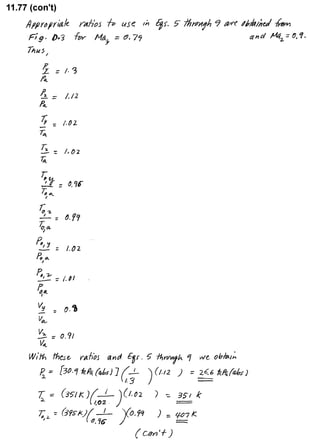 11.77 (con't)
Appropriate ratios to use in Eqs. 5 through 9 are obtained from
Fig. D.3 for Ma_y = 0.79 and Ma_2 = 0.9.
Thus,
P_y / P_a = 1.3
P_2 / P_a = 1.12
T_y / T_a = 1.02
T_2 / T_a = 1.02
T_0,y / T_0,a = 0.96
T_0,2 / T_0,a = 0.99
P_0,y / P_0,a = 1.02
P_0,2 / P_0,a = 1.01
V_y / V_a = 0.8
V_2 / V_a = 0.91
With these ratios and Eqs. 5 through 9 we obtain
P_2 = [30.9 kPa (abs)] (1 / 1.3) (1.12) = 26.6 kPa (abs)
T_2 = (351 K) (1 / 1.02) (1.02) = 351 K
T_0,2 = (395 K) (1 / 0.96) (0.99) = 407 K
(con't)